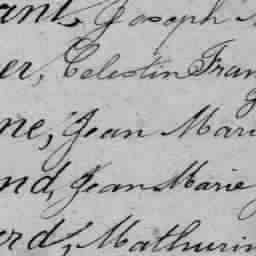 ant, Joseph
er, Celestin Fran
ne, Jean Mari
nd, Jean Marie
ard, Mathurin